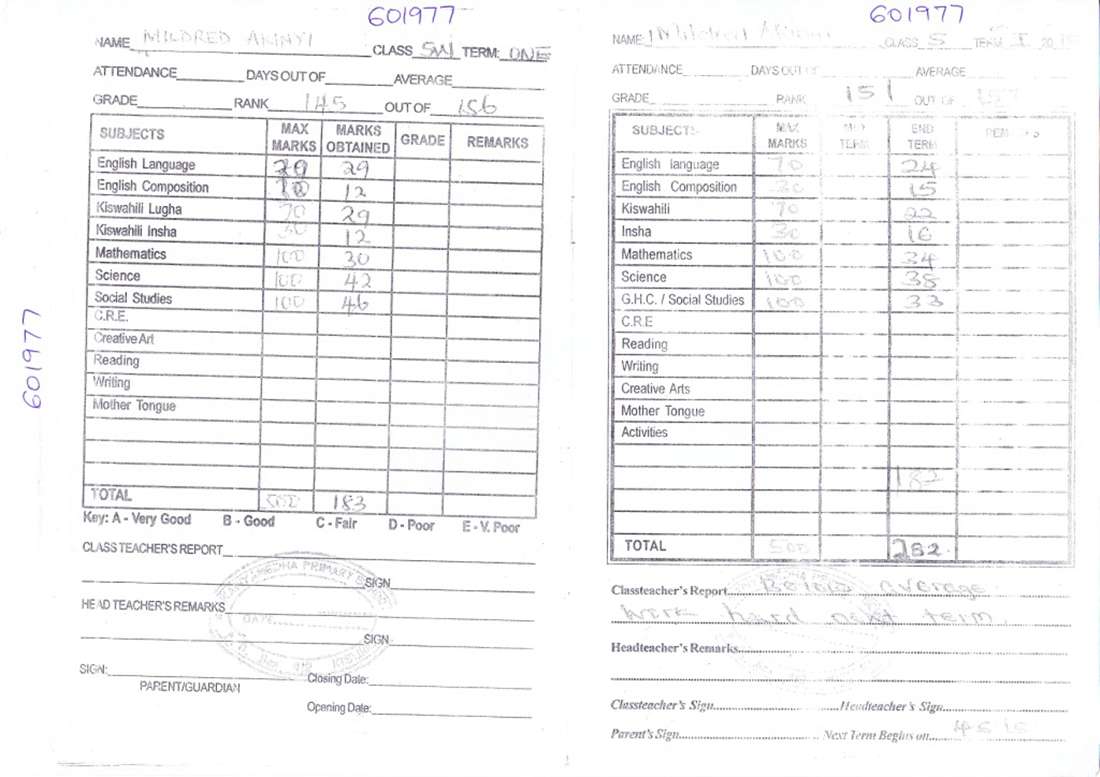 601977
NAME MILDRED AKINYI CLASS 5W TERM: ONE
ATTENDANCE DAYS OUT OF AVERAGE
GRADE RANK 145 OUT OF 156
SUBJECTS MAX MARKS MARKS OBTAINED GRADE REMARKS
English Language 29
English Composition 12
Kiswahili Lugha 70 29
Kiswahili Insha 30 12
Mathematics 100 30
Science 100 42
Social Studies 100 46
C.R.E.
Creative Art
Reading
Writing
Mother Tongue
TOTAL 500 183
Key: A - Very Good B - Good C - Fair D - Poor E - V. Poor
CLASS TEACHER'S REPORT
SIGN
HEAD TEACHER'S REMARKS
SIGN
SIGN:
PARENT/GUARDIAN
Closing Date:
Opening Date:
PRIMARY
DATE
601977
601977
NAME: Mildred CLASS 5 TERM I 20
ATTENDANCE DAYS OUT OF AVERAGE
GRADE RANK 151 OUT OF
SUBJECTS MAX MARKS MID TERM END TERM REMARKS
English language 70 24
English Composition 30 15
Kiswahili 70 22
Insha 30 16
Mathematics 100 34
Science 100 38
G.H.C. / Social Studies 100 33
C.R.E
Reading
Writing
Creative Arts
Mother Tongue
Activities
182
TOTAL 500 282
Classteacher's Report Below average
work hard next term
Headteacher's Remarks
Classteacher's Sign Headteacher's Sign
Parent's Sign Next Term Begins on